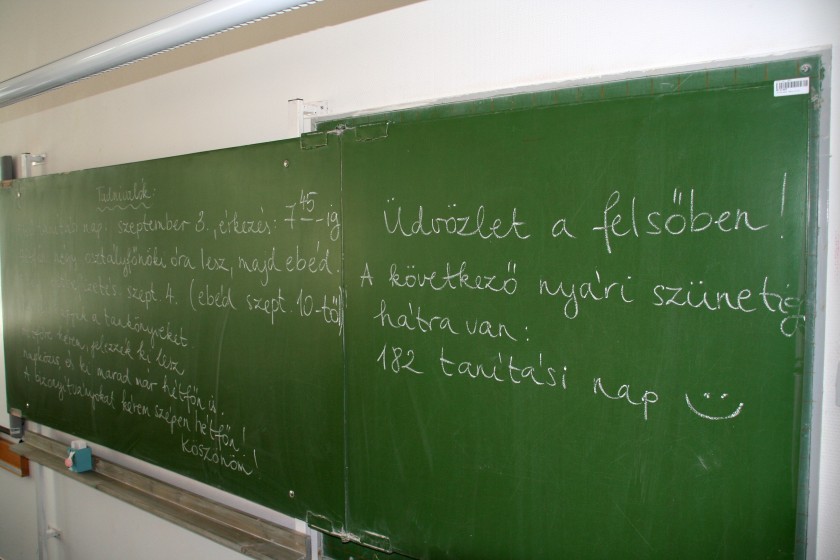 Tudnivalók:
tanítási nap: szeptember 3., érkezés: 7 45-ig
osztályfőnöki óra lesz, majd ebéd.
szept. 4. (ebéd szept. 10-től)
a tankönyveket
jelezzék ki lesz
napközis és ki marad már hétfőn is.
A bizonyítványokat kérem szépen hétfőn!
Köszönöm!
Üdvözlet a felsőben!
A következő nyári szünetig
hátra van:
182 tanítási nap